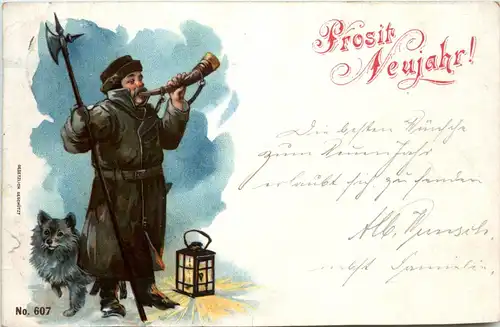 Prosit
Neujahr!
Die besten Wünsche
zum Neuen Jahr
erlaubt sich zu senden
Alb.
nebst Familie.
GESETZLICH GESCHÜTZT
No. 607